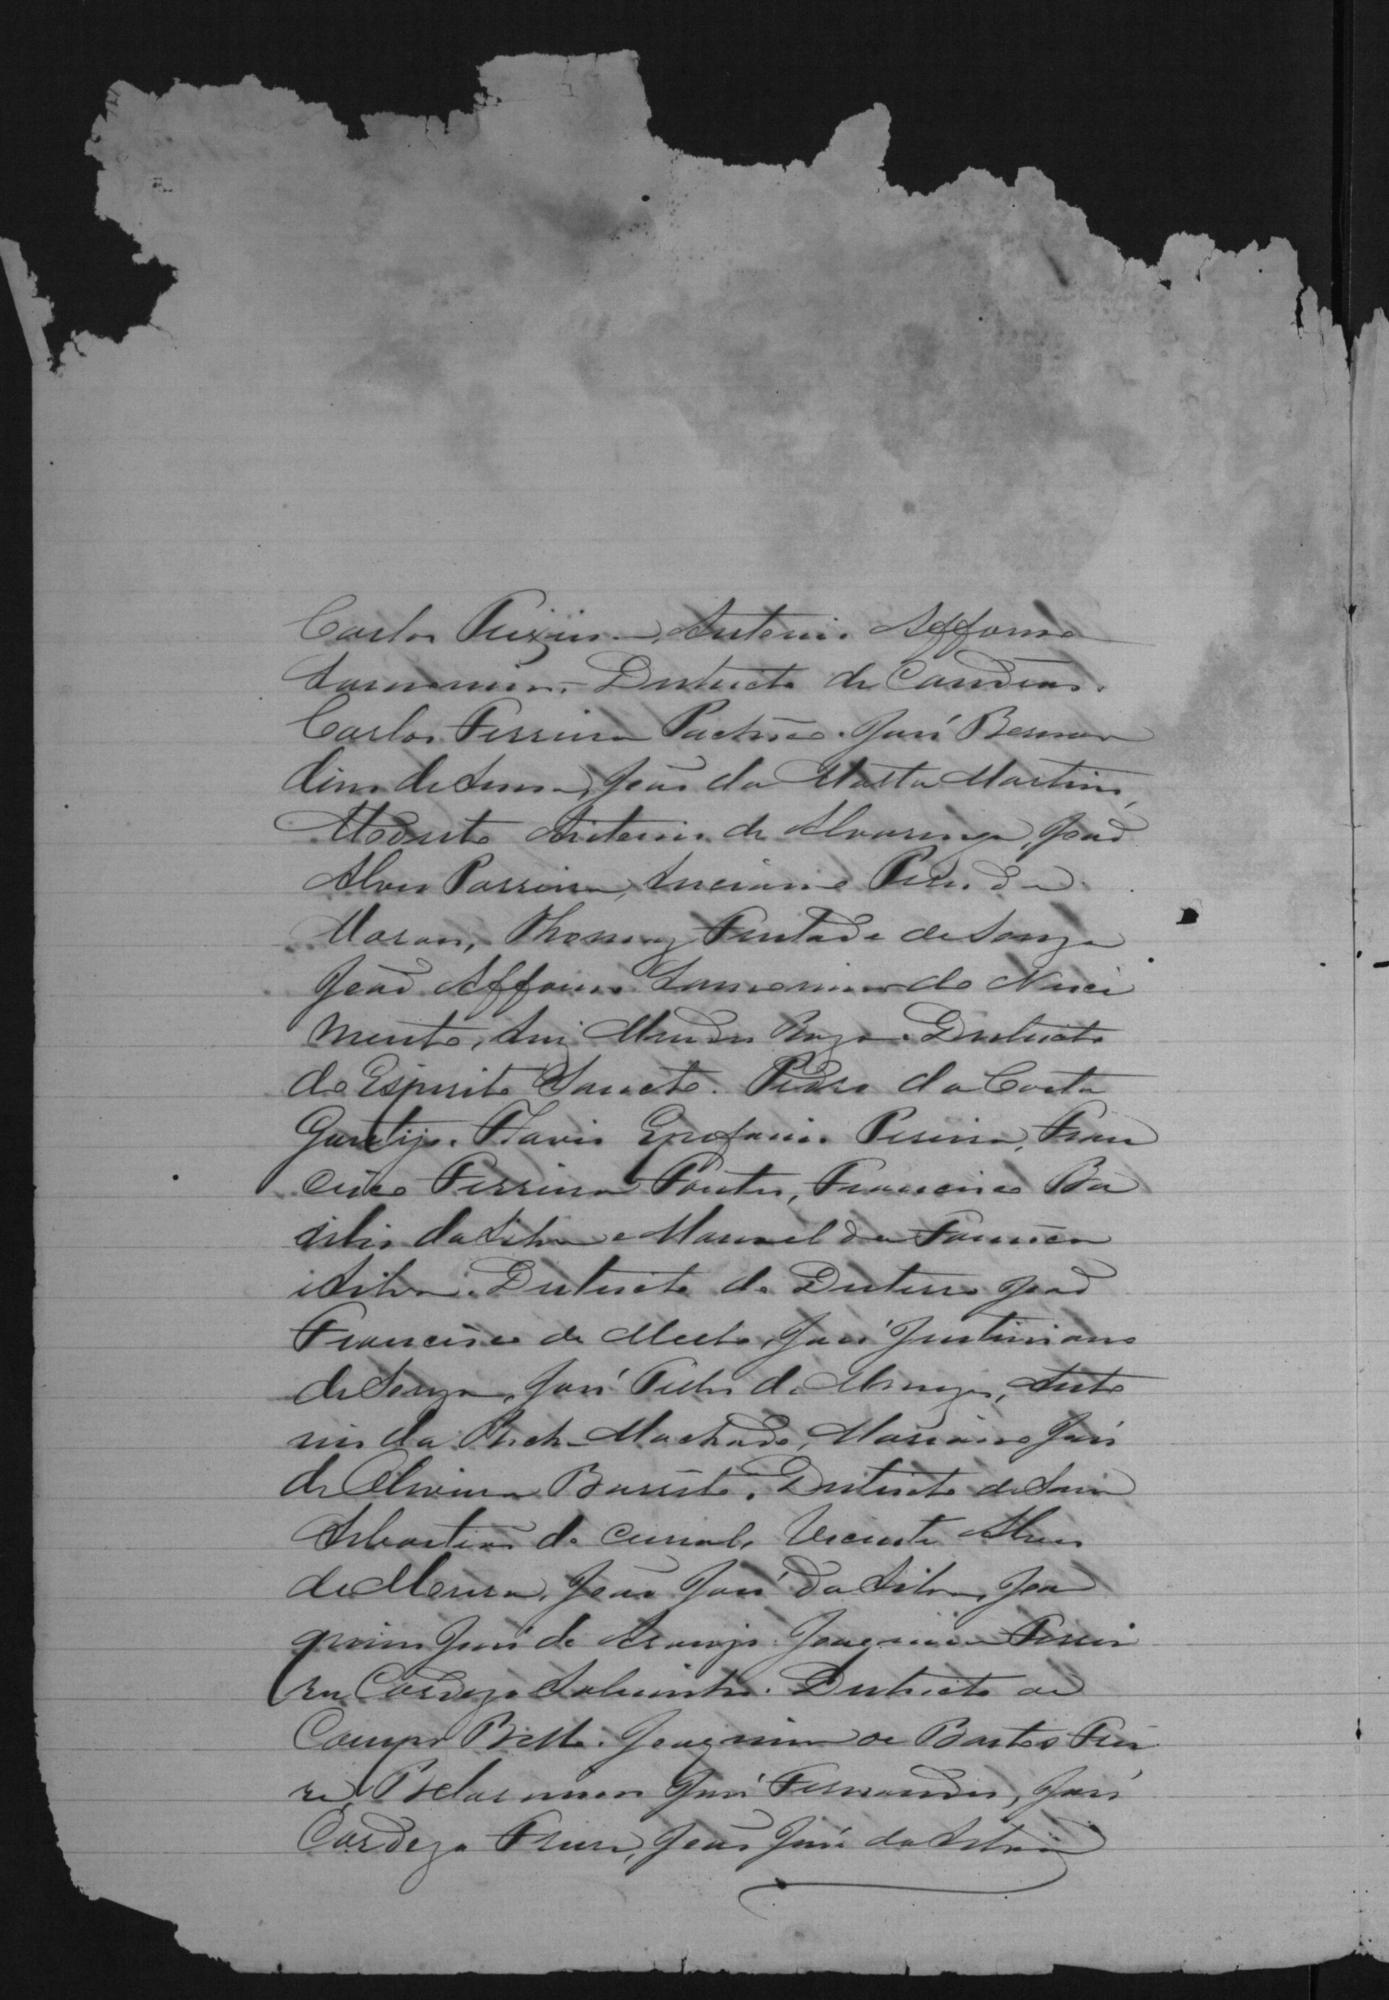 Carlos Antonio Affonso
Lamounier. Districto de Candeias.
Carlos Ferreira Pacheco. José Bernar
dino de Sena, João da Matta Martins,
Modesto Antonio de Alvarenga, João
Alves Parreira, Luciano
Moraes, Thomaz Furtado de Souza
João Affonso Lamounier do Nasci
mento, Luiz Mendes Districto
do Espirito Sancto. Pedro da Costa
Flavio Epifanio Pereira, Fran
cisco Ferreira Pontes, Francisco Ba
silio da Silva e Manoel da Fonseca
e Silva. Districto do Desterro João
Francisco de Mello, José Justiniano
de Souza, José de Menezes, Anto
nio da Rocha Machado, Marianno José
de Oliveira Barreto. Districto de São
Sebastião do Curral, Vicente Alves
de Moura, João José da Silva, Joa
quim José de Araujo. Joaquim Ferrei
ra Cardozo Districto de
Campo Bello. Joaquim de Bastos Frei
re, José Fernandes, José
Cardozo Freire, João José da Silva